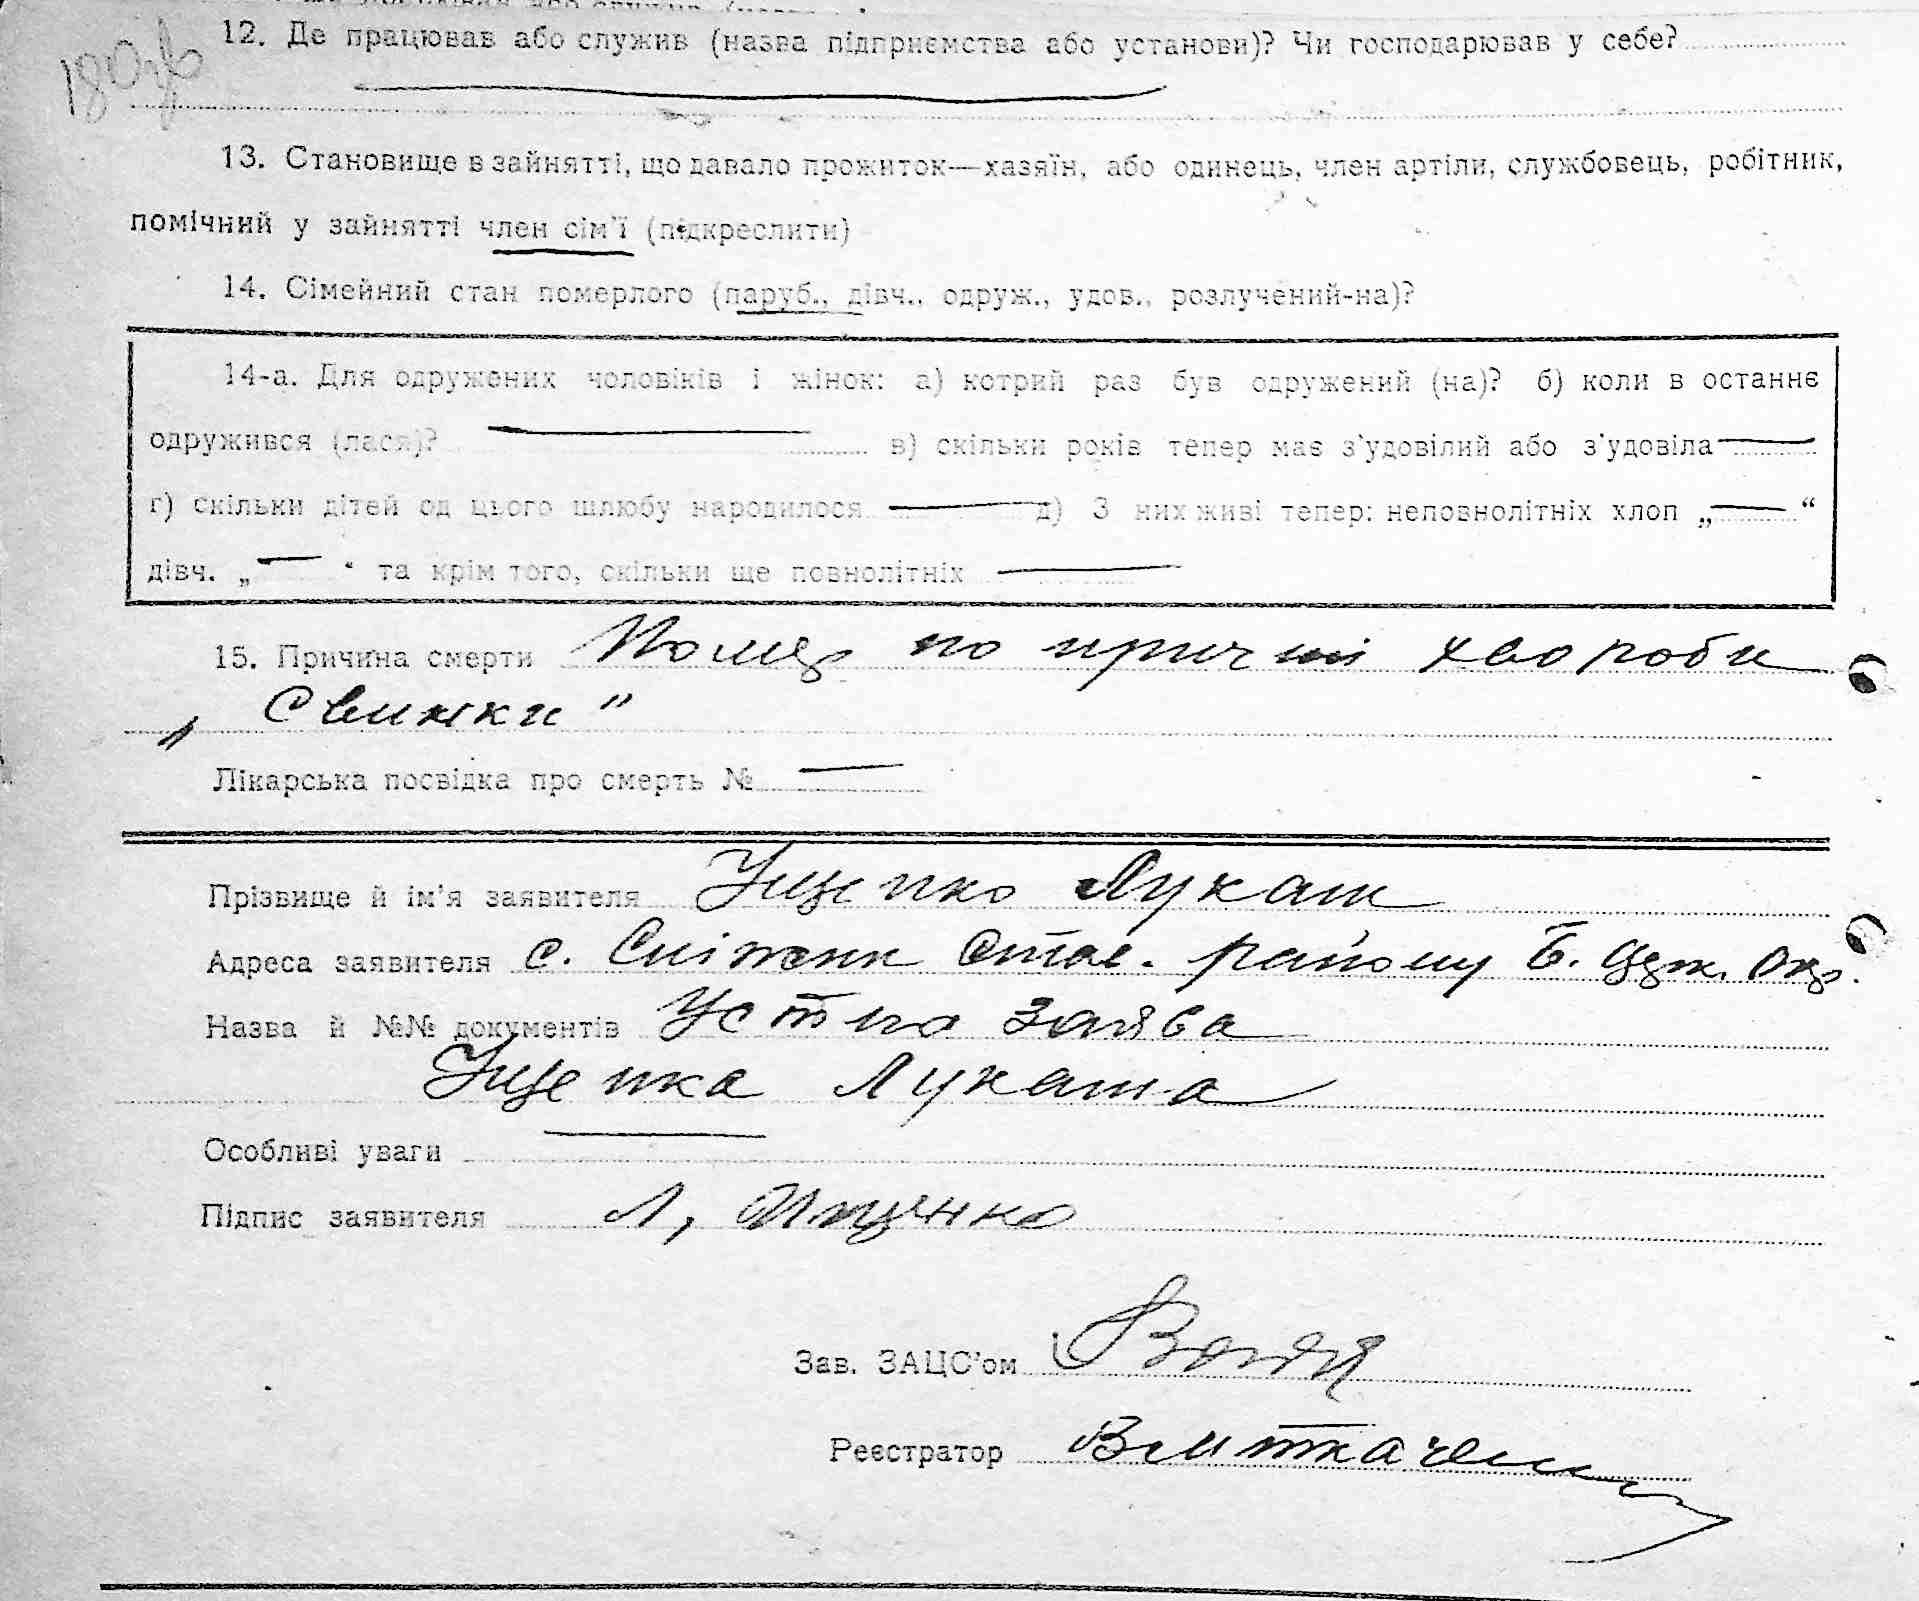 180зв
12. Де працював або служив (назва підприємства або установи)? Чи господарював у себе?
13. Становище в зайнятті, що давало прожиток—хазяїн, або одинець, член артіли, службовець, робітник,
помічний у зайнятті член сім'ї (підкреслити)
14. Сімейний стан померлого (паруб., дівч., одруж., удов., розлучений-на)?
14-а. Для одружених чоловіків і жінок: а) котрий раз був одружений (на)? б) коли в останнє
одружився (лася)? в) скільки років тепер має з'удовілий або з'удовіла
г) скільки дітей од цього шлюбу народилося д) З них живі тепер: неповнолітніх хлоп „ “
дівч. „ “ та крім того, скільки ще повнолітніх
15. Причина смерти Помер по причині хвороби
„Свинки"
Лікарська посвідка про смерть №
Прізвище й ім'я заявителя Іщенко Лукаш
Адреса заявителя с. Сніжки Став. району Б. Церк. Окр.
Назва й №№ документів Устна заява
Іщенка Лукаша
Особливі уваги
Підпис заявителя Л, Іщенко
Зав. ЗАЦС'ом
Реєстратор